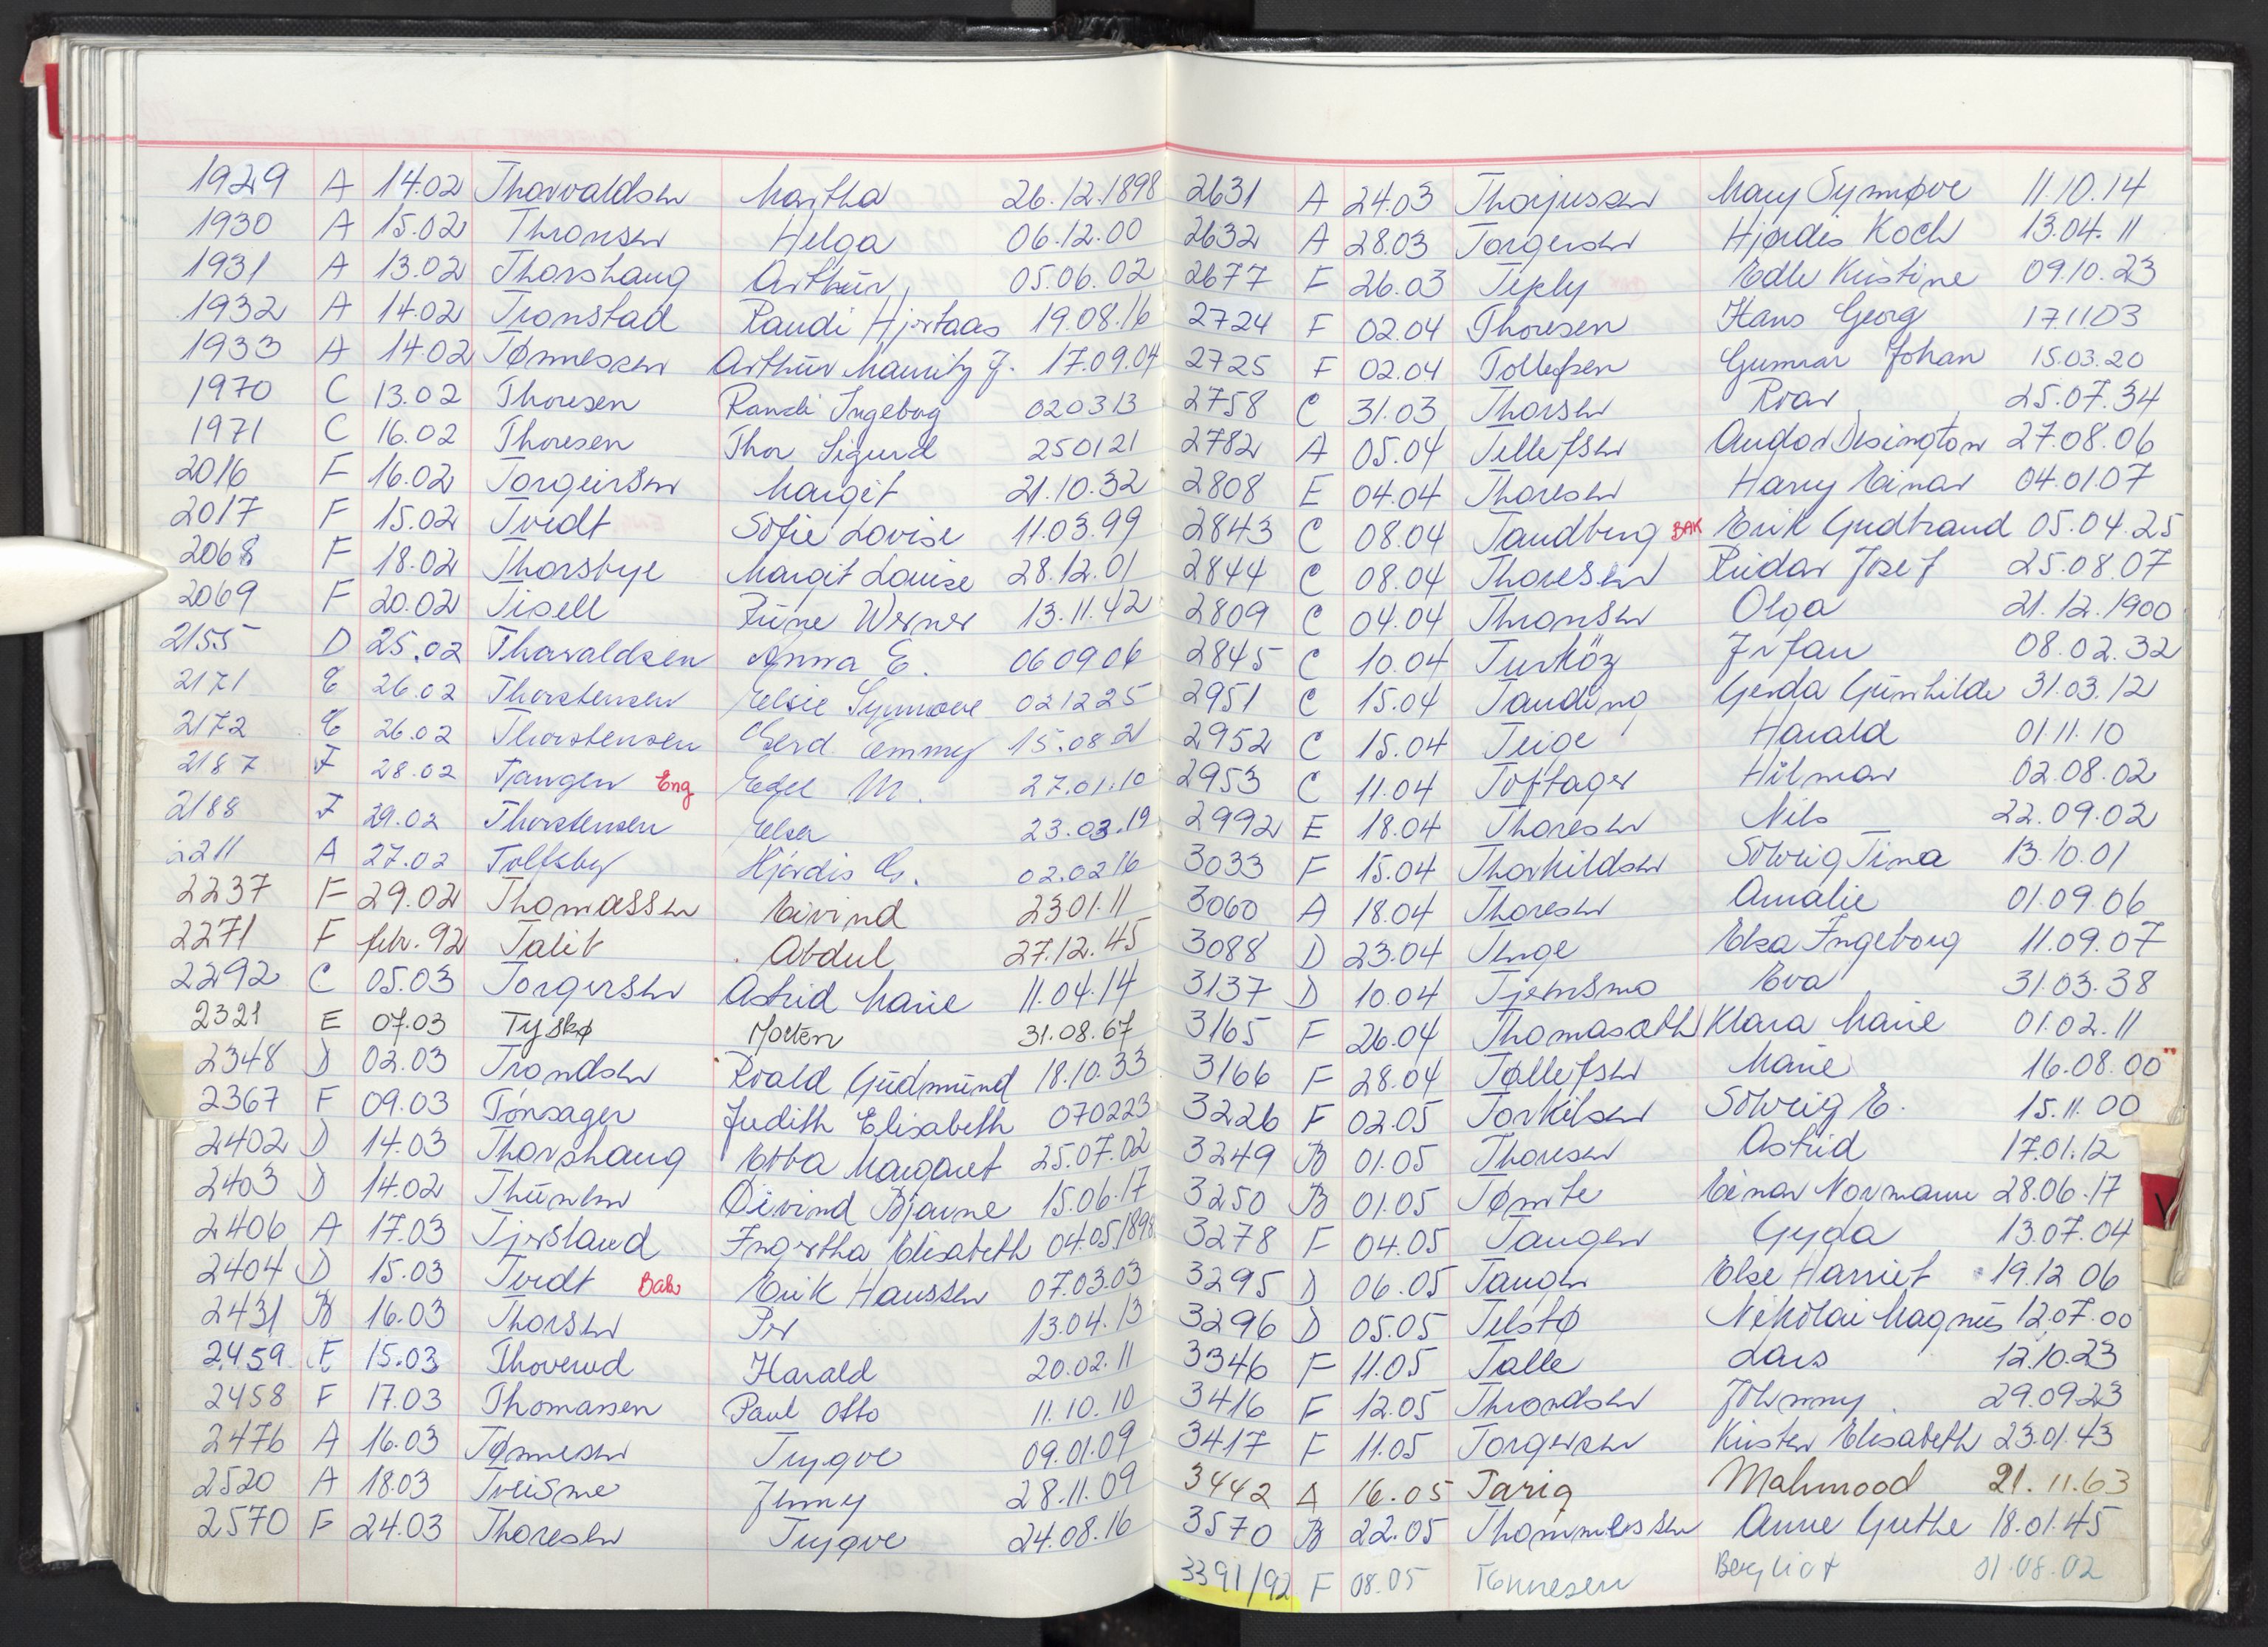 1929 A 14.02 Thorvaldsen Martha 26.12.1898
1930 A 15.02 Thronsen Helga 06.12.00
1931 A 13.02 Thorshaug Arthur 05.06.02
1932 A 14.02 Tronstad Randi Hjortaas 19.08.16
1933 A 14.02 Tønnessen Arthur Mauritz J. 17.09.04
1970 C 13.02 Thoresen Randi Ingeborg 020313
1971 C 16.02 Thoresen Thor Sigurd 250121
2016 F 16.02 Torgeirsen Margit 21.10.32
2017 F 15.02 Tvedt Sofie Lovise 11.03.99
2068 F 18.02 Thorsbye Margit Louise 28.12.01
2069 F 20.02 Tisell Rune Werner 13.11.42
2155 D 25.02 Thorvaldsen Anna E. 060906
2171 E 26.02 Thorstensen Elsie Synnøve 021225
2172 E 26.02 Thorstensen Gerd Emmy 15.08.21
2187 F 28.02 Tangen Eng Edel M. 27.01.10
2188 F 29.02 Thorstensen Elsa 23.03.19
2211 A 27.02 Tolfsby Hjørdis 02.0216
2237 F 29.02 Thomassen Eivind 23.01.11
2271 F febr. 92 Talib Abdul 27.12.45
2292 C 05.03 Torgersen Astrid Marie 11.04.14
2321 E 07.03 Tyskø Morten 31.08.67
2348 D 02.03 Trondsen Roald Gudmund 18.10.33
2367 F 09.03 Tonsager Judith Elisabeth 070223
2402 D 14.03 Thorshaug Ebba Margaret 25.07.02
2403 D 14.02 Thunem Øivind Bjarne 15.06.17
2406 A 17.03 Tjersland Ingertha Elisabeth 04.05.1898
2404 D 15.03 Tvedt Bak Erik Hanssen 07.03.03
2431 B 16.03 Thorsen Per 13.04.13
2459 F 15.03 Thoverud Harald 20.02.11
2458 F 17.03 Thomassen Paul Otto 11.10.10
2476 A 16.03 Tønnesen Trygve 09.01.09
2520 A 18.03 Jenny 28.11.09
2570 F 24.03 Thoresen Trygve 24.08.16
2631 A 24.03 Thorjussen Mary Synnøve 11.10.14
2632 A 28.03 Torgersen Hjørdis Koch 13.04.11
2677 F 26.03 Teply Edle Kristine 09.10.23
2724 F 02.04 Thoresen Hans Georg 171103
2725 F 02.04 Tollefsen Gunnar Johan 15.03.20
2758 C 31.03 Thorsen Roar 25.07.34
2782 A 05.04 Tellefsen Andor Desington 27.08.06
2808 E 04.04 Thoresen Harry Einar 04.01.07
2843 C 08.04 Tandberg BAK Erik Gudbrand 05.04.25
2844 C 08.04 Thoresen Reidar Josef 25.08.07
2809 C 04.04 Thronsen Olga 21.12.1900
2845 C 10.04 Turköz Irfan 08.02.32
2951 C 15.04 Tanding Gerda Gunhilde 31.03.12
2952 C 15.04 Teige Harald 01.11.10
2953 C 11.04 Toftager Hilmar 02.08.02
2992 E 18.04 Thoresen Nils 22.09.02
3033 F 15.04 Thorkildsen Solveig Tina 13.10.01
3060 A 18.04 Thoresen Amalie 01.09.06
3088 D 23.04 Tenge Elsa Ingeborg 11.09.07
3137 D 10.04 Tjernsmo Eva 31.03.38
3165 F 26.04 Thomasæth Klara Marie 01.02.11
3166 F 28.04 Tøllefsen Marie 16.08.00
3226 F 02.05 Torkilsen Solveig E. 15.11.00
3249 B 01.05 Thoresen Astrid 17.01.12
3250 B 01.05 Tømte Einar Normann 28.06.17
3278 F 04.05 Tangen Gyda 13.07.04
3295 D 06.05 Tangen Else Harriet 19.12 06
3296 D 05.05 Telstø Nikolai Magnus 12.07.00
3346 F 11.05 Talle Lars 12.10.23
3416 F 12.05 Throndsen Johnny 29.0923
3417 F 11.05 Torgersen Kirsten Elisabeth 23.01.43
3442 A 16.05 Tariq Mahmood 21.11.63
3570 B 22.05 Thommessen Anne Grethe 18.01.45
3391/92 F 08.05 Tønnesen Bergliot 01.08.02